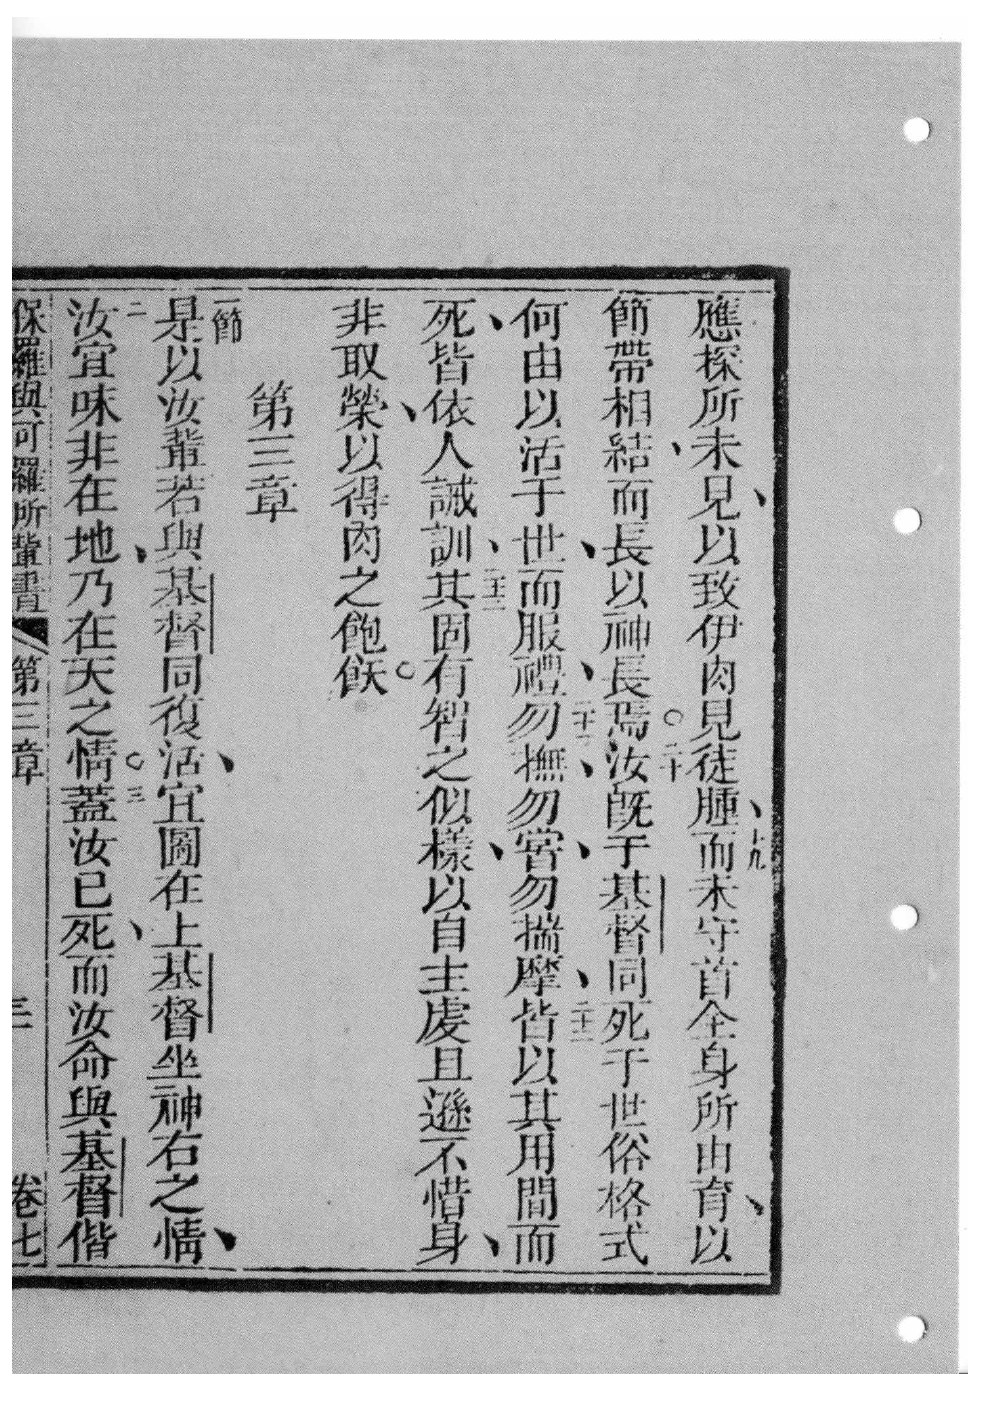 應探所未見、以致伊肉見徒腫、十九而未守首全身所由育、以
節帶相結、而長以神長焉。二十汝既于基督同死于世俗格式
何由以活于世、而服禮、二十一勿撫、勿嘗、勿揣摩、二十二皆以其用間而
死、皆依人誡訓、二十三其固有智之似樣、以自主虔且遜不惜身、
非取榮、以得肉之飽飫。
第三章
一節是以汝輩若與基督同復活、宜圖在上基督坐神右之情、
二汝宜味非在地、乃在天之情。三蓋汝已死、而汝命與基督偕
保羅與可羅所輩書 第三章 三 卷七